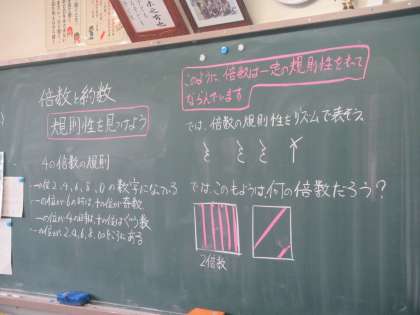 倍数と約数
規則性を見つけよう
4の倍数の規則
一の位2,4,6,8,0の数字になっている
一の位が6の時は、十の位が奇数
一の位が4の時は、十の位はぐう数
一の位が、2,4,6,8,0のところにある
このように、倍数は一定の規則性をもって
ならんでいます
では、倍数の規則性をリズムで表そう。
では、このもようは、何の倍数だろう?
2倍数